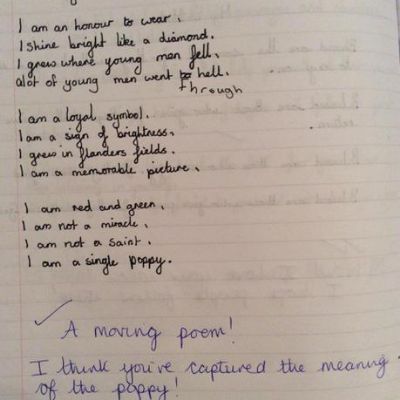 I am an honour to wear,
I shine bright like a diamond.
I grew where young men fell,
alot of young men went hell.
through
I am a loyal symbol.
I am a sign of brightness,
I grew in flanders fields.
I am a memorable picture,
I am red and green,
I am not a miracle,
I am not a saint,
I am a single poppy.
A moving poem!
I think you've captured the meaning
of the poppy!